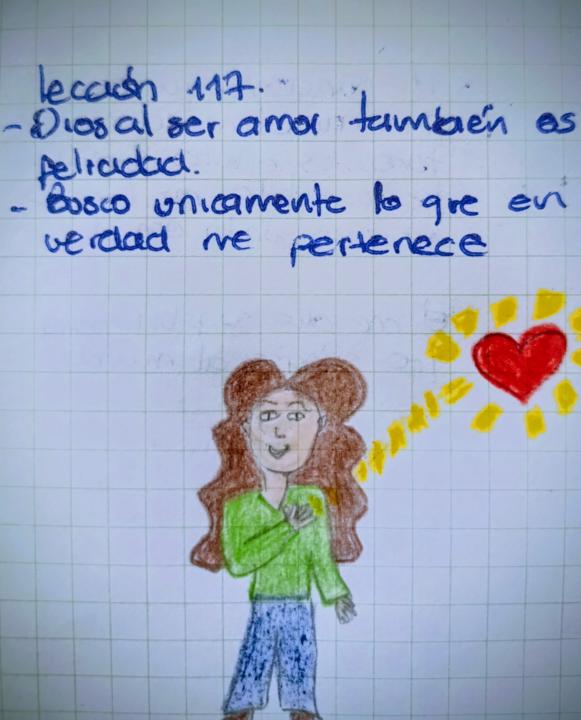 lección 117.
- Dios al ser amor también es
felicidad.
- Busco unicamente lo que en
verdad me pertenece